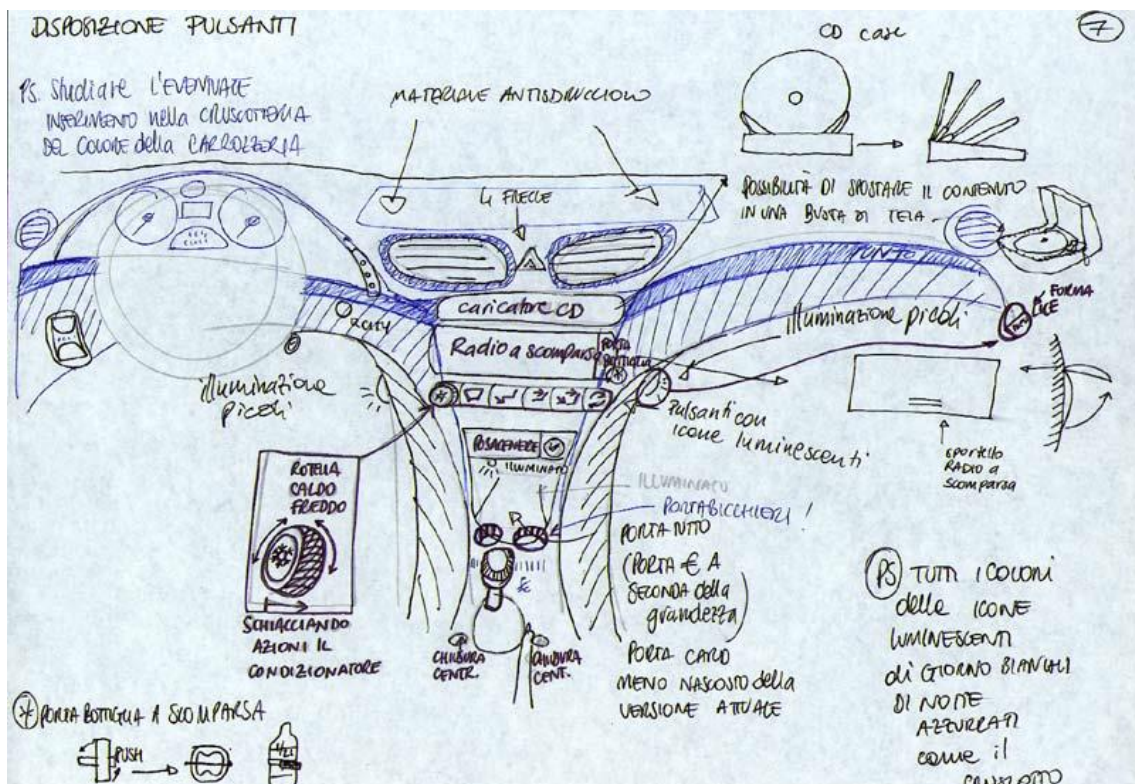 DISPOSIZIONE PULSANTI
7
CD case
PS. Studiare L'EVENTUALE
INSERIMENTO nella CRUSCOTTERIA
DEL COLORE della CARROZZERIA
MATERIALE ANTISDRUCCIOLO
4 FRECCE
POSSIBILITÀ DI SPOSTARE IL CONTENUTO
IN UNA BUSTA DI TELA
PUNTO
FORMA
caricatore CD
City
Radio a scomparsa
PORTA
BOTTIGLIA
illuminazione picoli
illuminazione
picoli
Pulsanti con
icone luminescenti
sportello
RADIO a
SCOMPARSA
POSACENERE
ILLUMINATO
ILLUMINATO
PORTABICCHIERI!
ROTELLA
CALDO
FREDDO
SCHIACCIANDO
AZIONI IL
CONDIZIONATORE
CHIUSURA
CENTR.
CHIUSURA
CENT.
PORTA TUTTO
(PORTA € A
SECONDA della
grandezza)
PORTA CARD
MENO NASCOSTO della
VERSIONE ATTUALE
PS TUTTI I COLORI
delle ICONE
LUMINESCENTI
di GIORNO BIANCHI
DI NOTTE
AZZURRATI
come il
CRUSCOTTO
* PORTA BOTTIGLIA A SCOMPARSA
PUSH